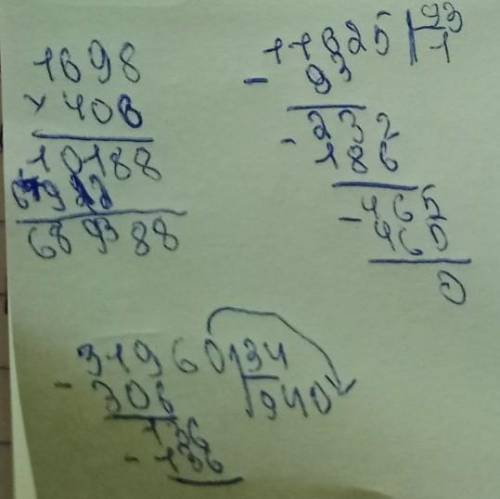 1698
× 406
10188
6792
689388
11625 | 93
- 93 1
232
- 186
465
- 465
0
31960 | 34
- 306 940
136
- 136